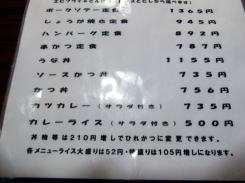 ポークソテー定食 1365円
しょうが焼き定食 945円
ハンバーグ定食 892円
串かつ定食 787円
うな丼 1155円
ソースかつ丼 735円
かつ丼 756円
カツカレー(サラダ付き) 735円
カレーライス(サラダ付き) 500円
丼物等は210円増しでひれかつに変更できます。
各メニューライス大盛りは52円・特盛りは105円増しになります。